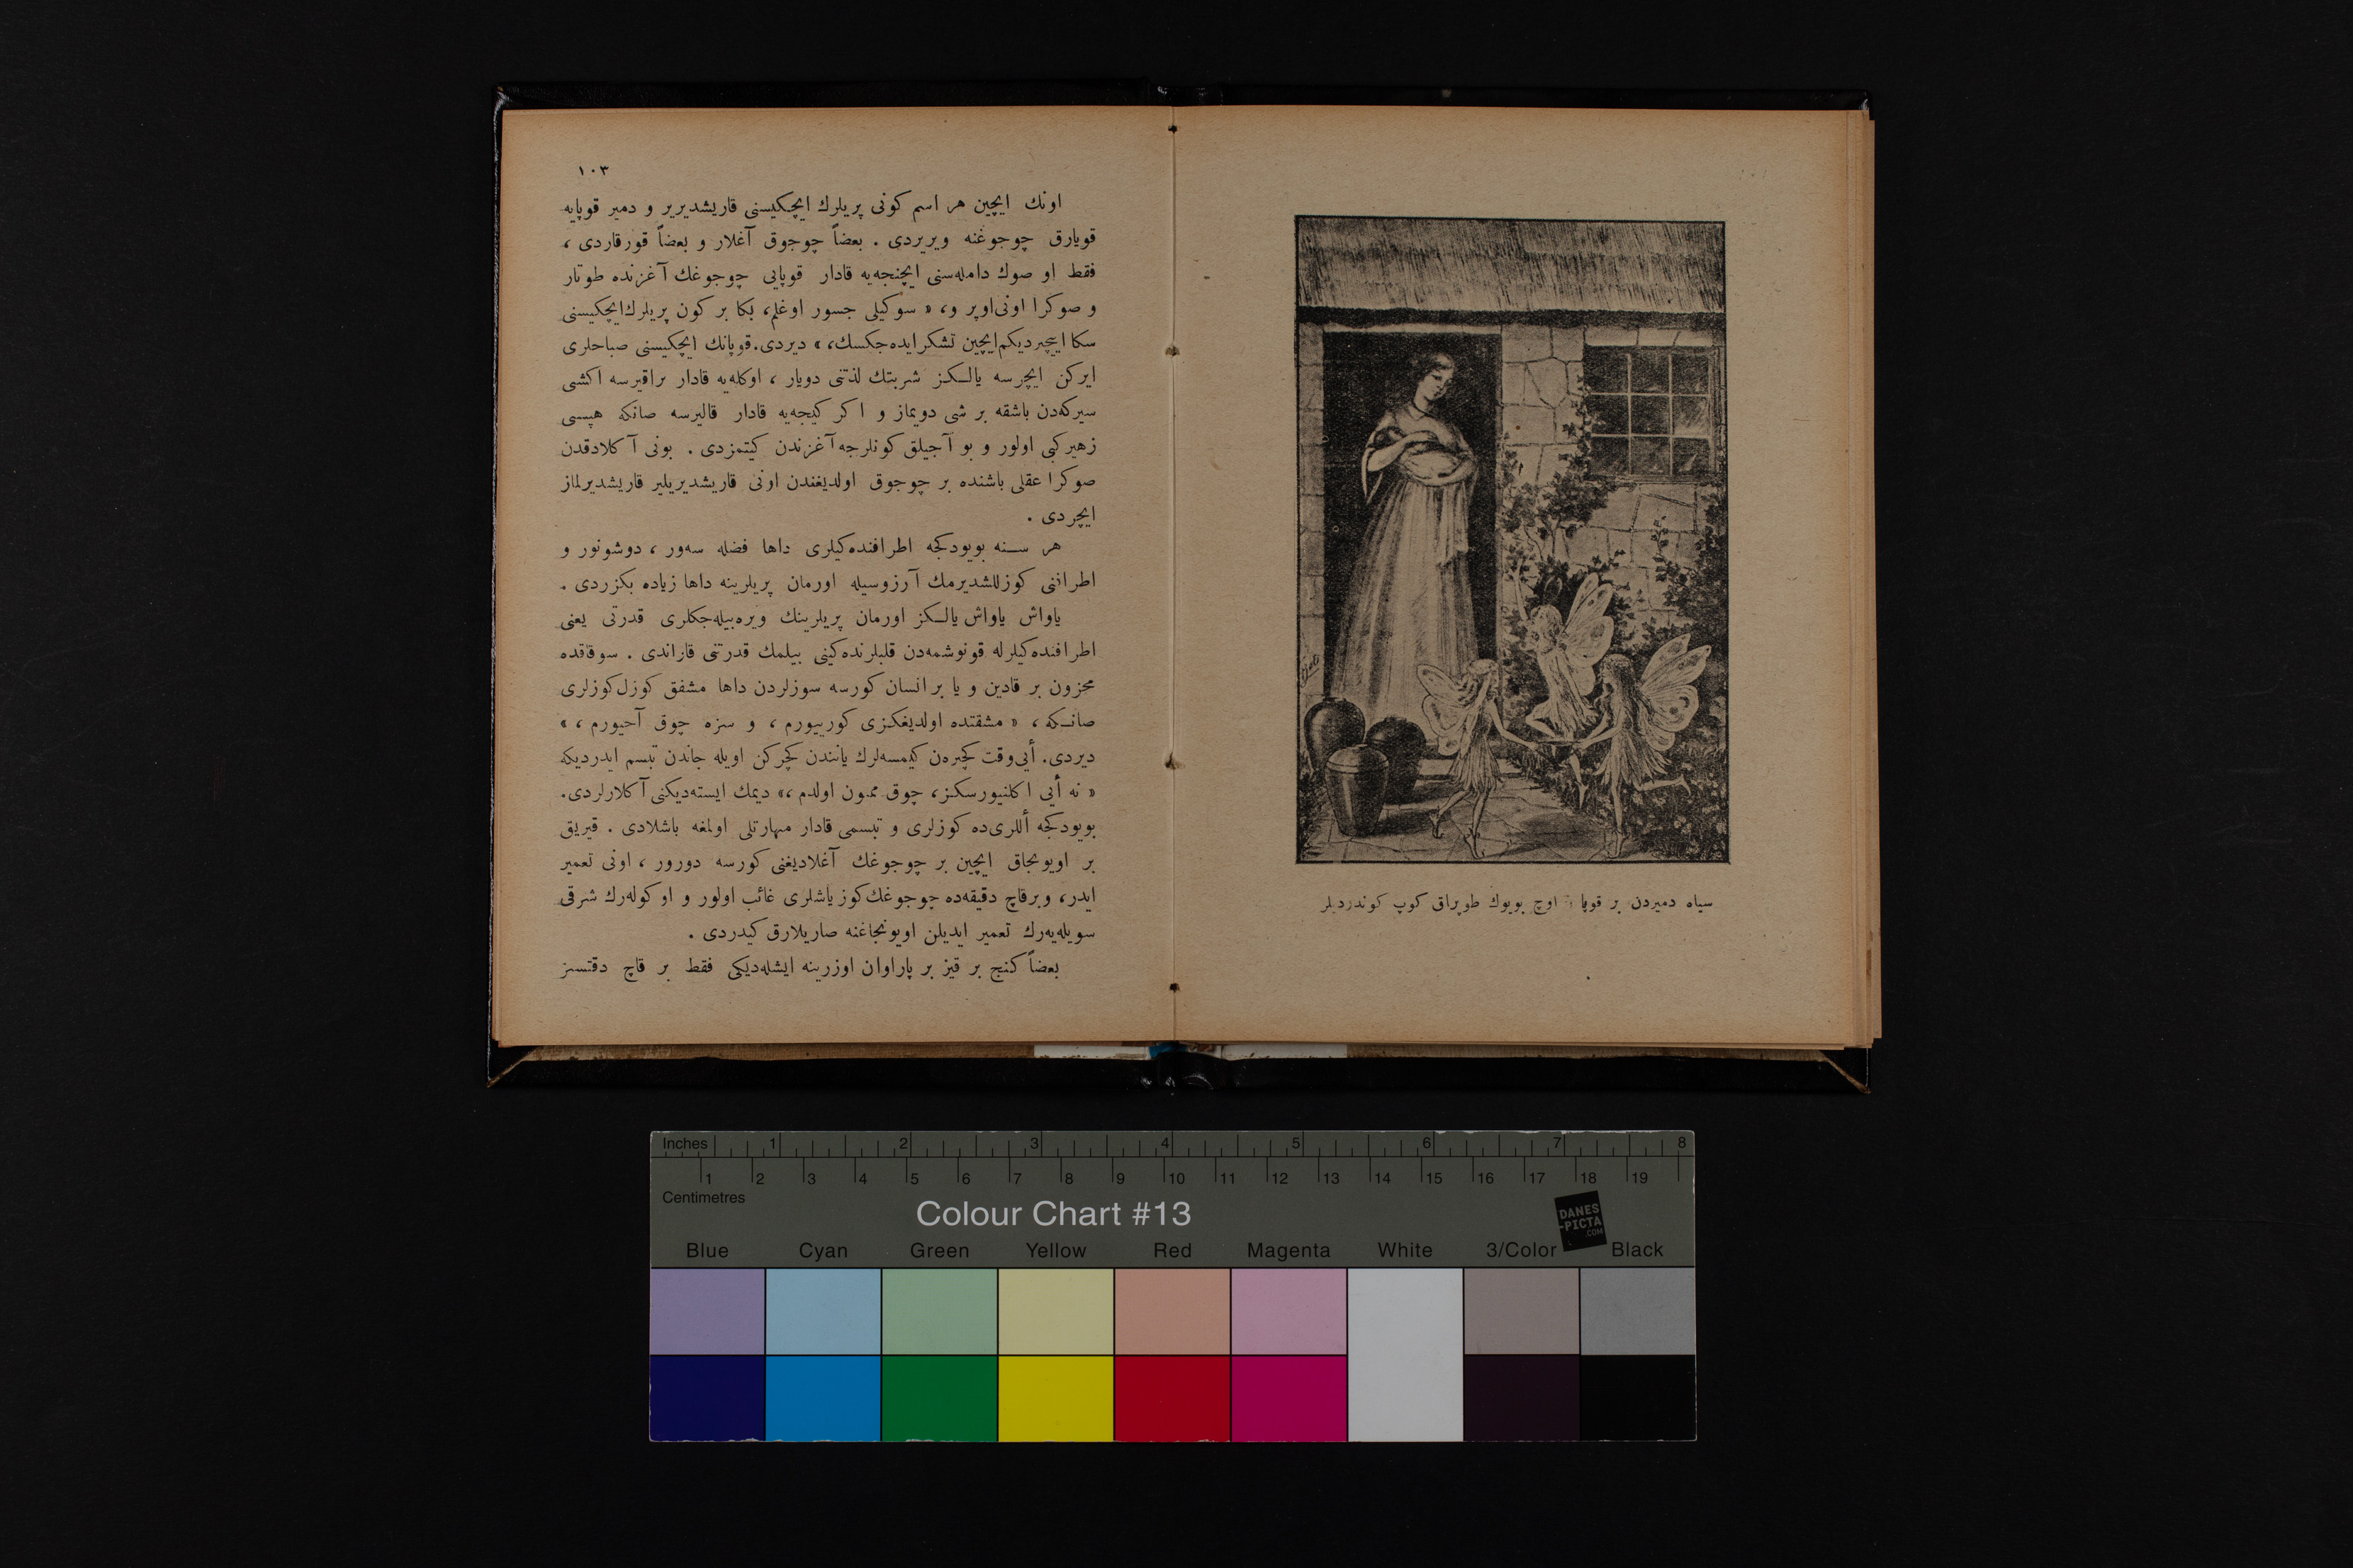 سیاه دمیردن بر قوپا ؛ اوچ بویوك طوپراق كوپ كوندردیلر
١٠٣
اونك ایچین هر اسم كونی پریلرك ایچكیسنی قاریشدیریر و دمیر قوپایه
قویارق چوجوغنه ویریردی . بعضاً چوجوق آغلار و بعضاً قورقاردی ،
فقط او صوك دامله‌سنی ایچنجه‌یه قادار قوپایی چوجوغك آغزنده طوتار
و صوكرا اونی اوپر و، « سوكیلی جسور اوغلم، بكا بر كون پریلرك ایچكیسنی
سكا ایچیردیكم ایچین تشكر ایده‌جكسك، » دیردی. قوپانك ایچكیسنی صباحلری
ایركن ایچرسه یالـكز شربتك لذتنی دویار ، اوكله‌یه قادار براقیرسه اكشی
سیركه‌دن باشقه بر شی دویماز و اكر كیجه‌یه قادار قالیرسه صانكه هپسی
زهیر كبی اولور و بو آجیلق كونلرجه آغزندن كیتمزدی . بونی آكلادقدن
صوكرا عقلی باشنده بر چوجوق اولدیغندن اونی قاریشدیریلیر قاریشدیرلماز
ایچردی .
هر سـنه بویودكجه اطرافنده‌كیلری داها فضله سه‌ور ، دوشونور و
اطرافنی كوزللشدیرمك آرزوسیله اورمان پریلرینه داها زیاده بكزردی .
یاواش یاواش یالـكز اورمان پریلرینك ویره‌بیله‌جكلری قدرتی یعنی
اطرافنده‌كیلرله قونوشمه‌دن قلبلرنده‌كینی بیلمك قدرتنی قازاندی . سوقاقده
محزون بر قادین و یا بر انسان كورسه سوزلردن داها مشفق كوزل كوزلری
صانـكه ، « مشقتده اولدیغكزی كورییورم ، و سزه چوق آجیورم ، »
دیردی. أیی وقت كچیره‌ن كیمسه‌لرك یانندن كچركن اویله جاندن تبسم ایدردیكه
« نه أیی اكلنیورسكز، چوق ممنون اولدم ،» دیمك ایسته‌دیكنی آكلارلردی.
بویودكجه أللری‌ده كوزلری و تبسمی قادار مهارتلی اولمغه باشلادی . قیریق
بر اویونجاق ایچین بر چوجوغك آغلادیغنی كورسه دورور ، اونی تعمیر
ایدر، و بر قاچ دقیقه‌ده چوجوغك كوز یاشلری غائب اولور و او كوله‌رك شرقی
سویله‌یه‌رك تعمیر ایدیلن اویونجاغنه صاریلارق كیدردی .
بعضاً كنج بر قیز بر پاراوان اوزرینه ایشله‌دیكی فقط بر قاچ دقتسز
Inches 1 2 3 4 5 6 7 8
1 2 3 4 5 6 7 8 9 10 11 12 13 14 15 16 17 18 19
Centimetres
Colour Chart #13
DANES
-PICTA
.COM
Blue Cyan Green Yellow Red Magenta White 3/Color Black